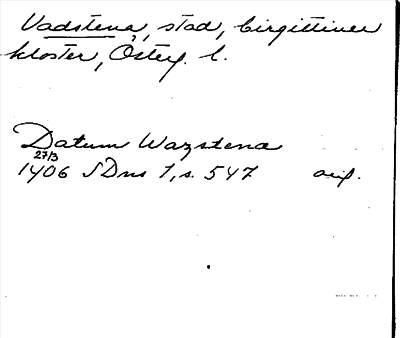 Vadstena, stad, birgittiner
kloster, Österg. l.
Datum Wazstena
27/3
1406 SDns 1, s. 547 orig.